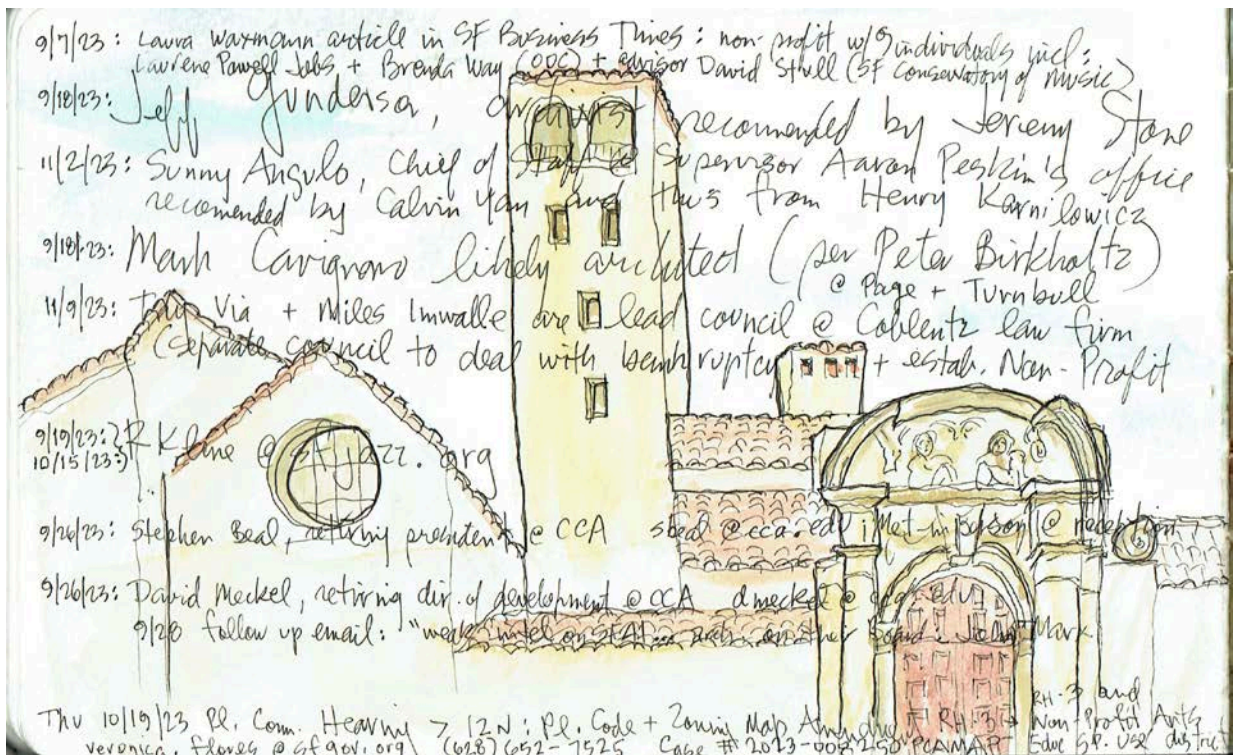 9/7/23: Laura Waxmann article in SF Business Times: non-profit w/ 5 individuals incl:
Laurene Powell Jobs + Brenda Way (ODC) + advisor David Stull (SF Conservatory of Music)
9/18/23: Jeff Gunderson, archivist recommended by Jeremy Stone
11/2/23: Sunny Angulo, Chief of Staff @ Supervisor Aaron Peskin's office
recomended by Calvin Yan and this from Henry Karnilowicz
9/18/23: Mark Cavignano likely architect (per Peter Birkholtz)
@ Page + Turnbull
11/9/23: Via + Miles Imwalle are lead council @ Coblentz law firm
(separate council to deal with bankruptcy + estab. Non-Profit
9/19/23:
10/15/23: RKline @ sfjazz.org
9/26/23: Stephen Beal, retiring president @ CCA sbeal@cca.edu; met in person @ reception
9/26/23: David Meckel, retiring dir. of development @ CCA dmeckel@cca.edu
9/28 follow up email: "weak intel on SFAI on their board: John Mark
RH-3 and
Thu 10/19/23 Pl. Com. Hearing > 12N: Pl. Code + Zoning Map RH-3 → Non-Profit Arts
veronica.flores@sfgov.org (628) 652-7525 Case # PCAMAP Educ Sp. Use District